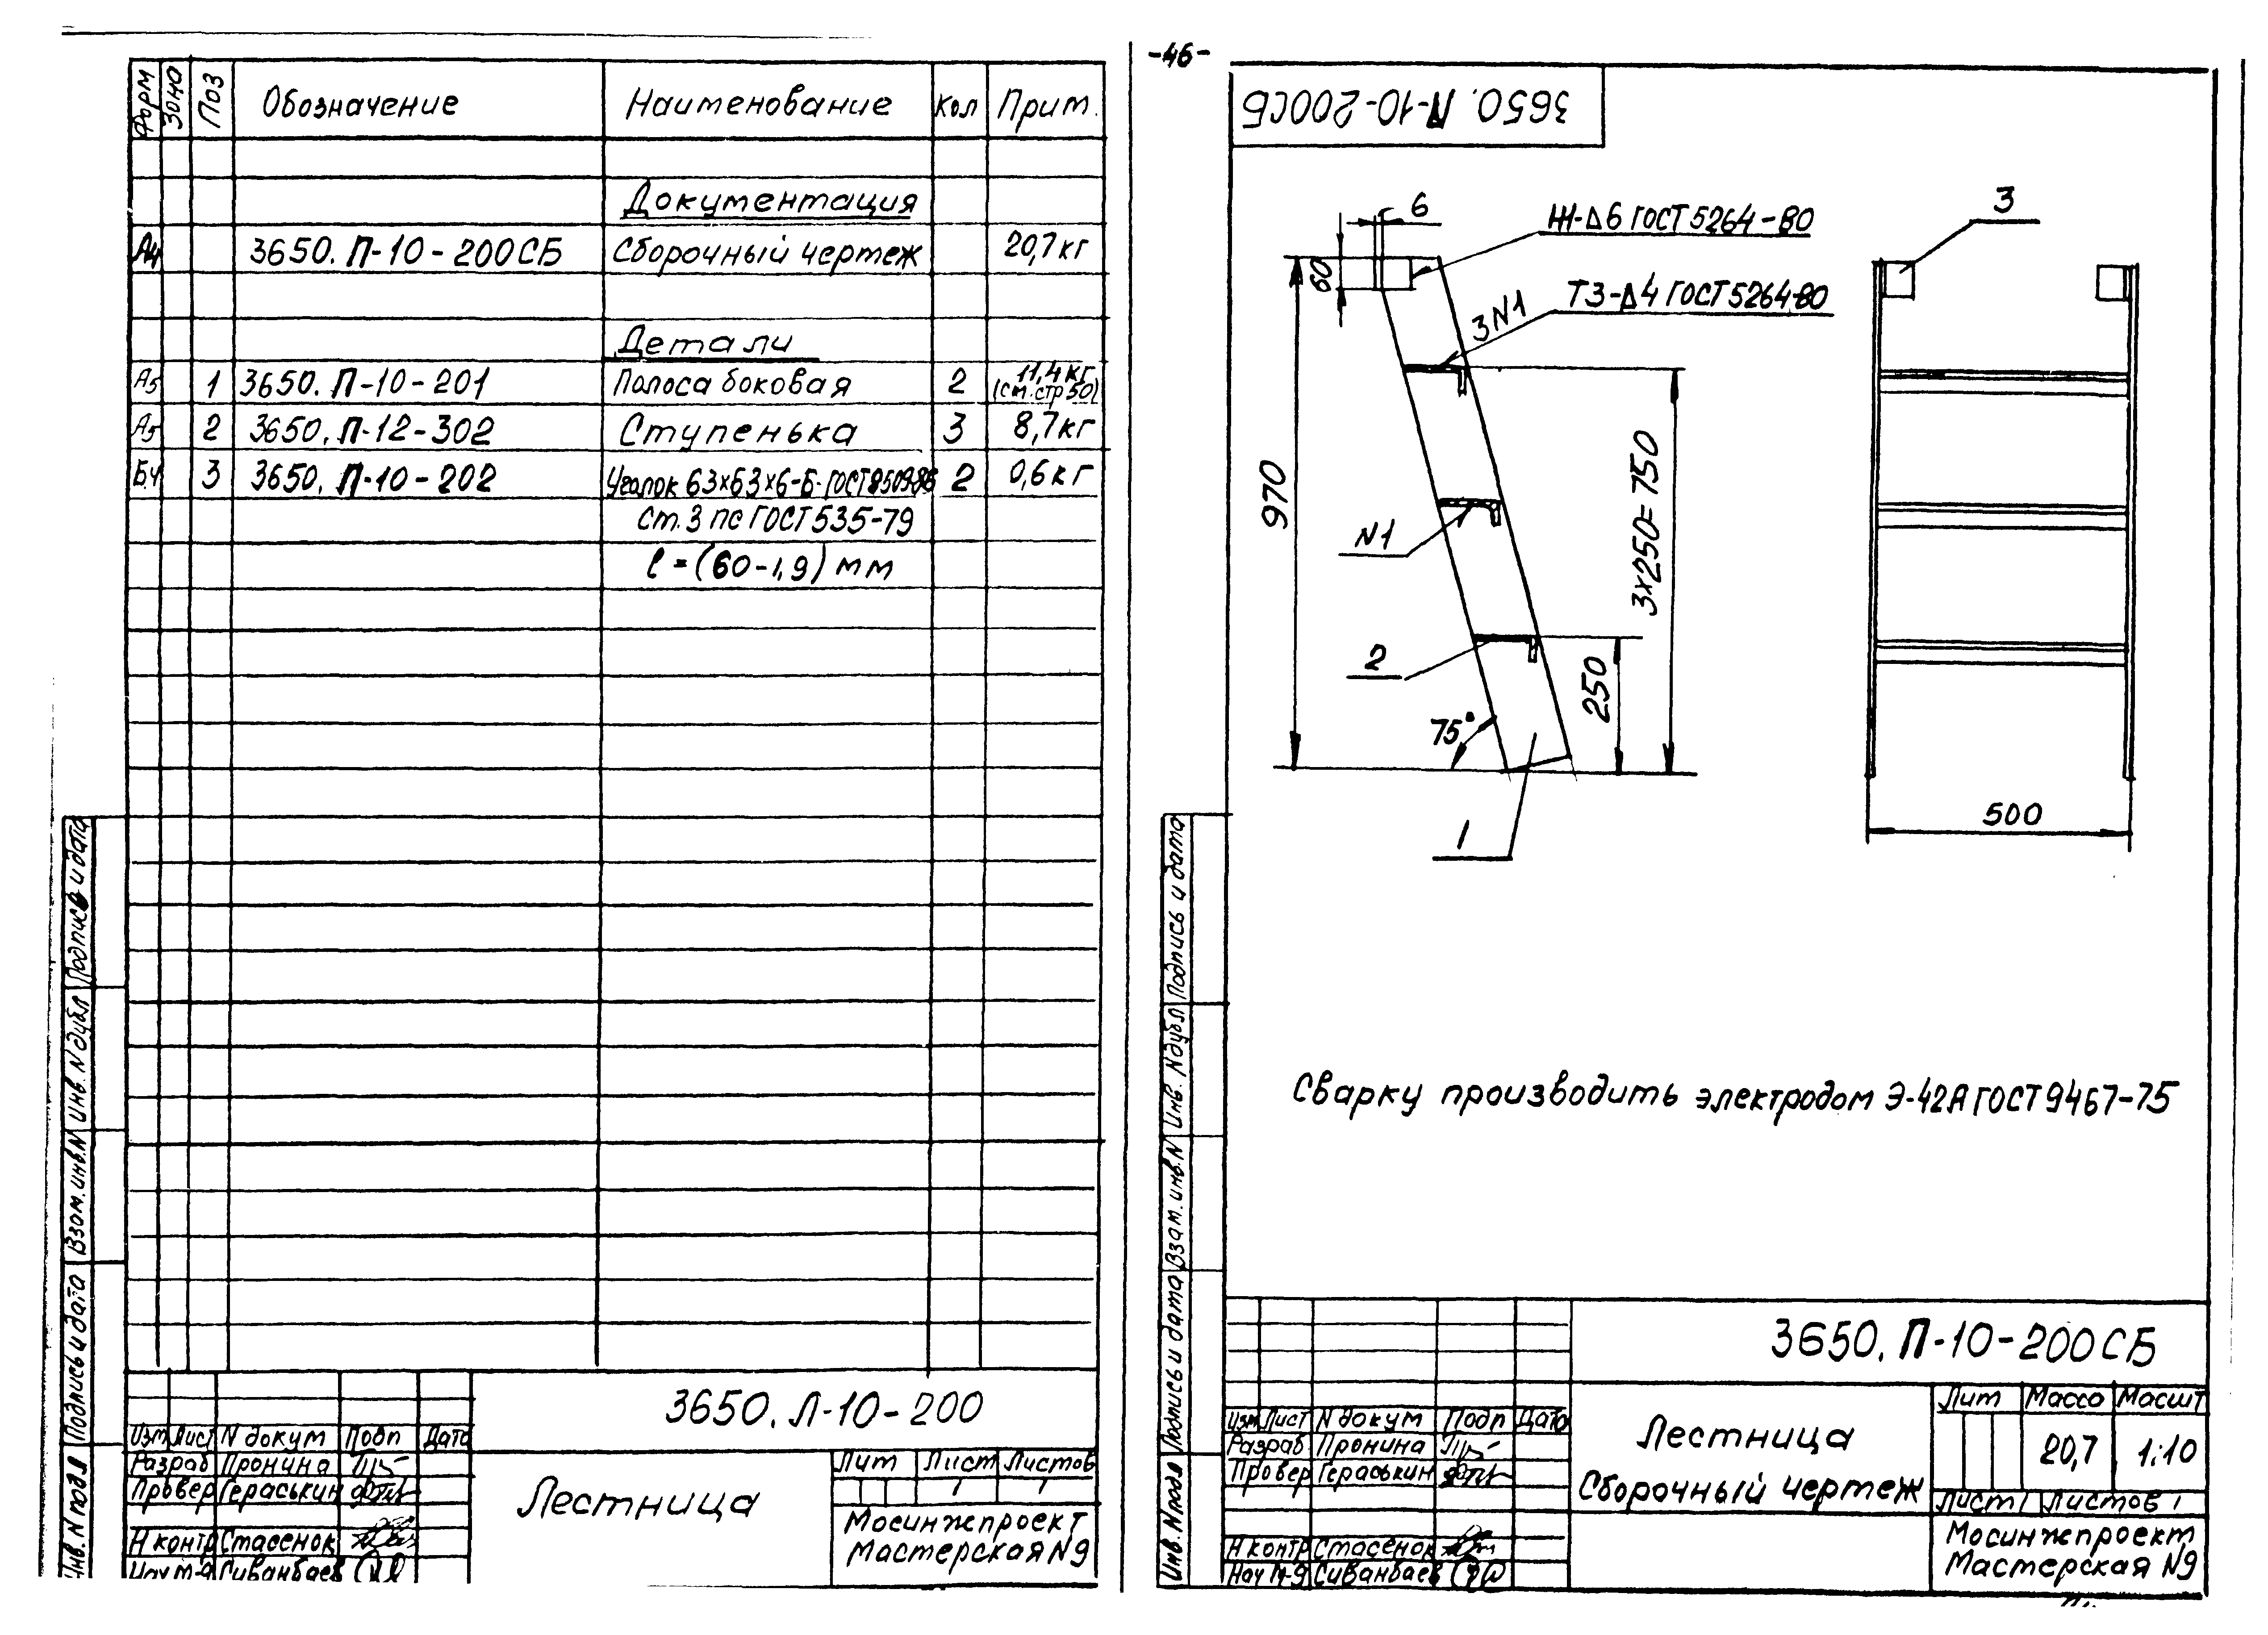 -46-
Форм Зона Поз Обозначение Наименование Кол Прим.
Документация
А4 3650. П-10-200СБ Сборочный чертеж 20,7кг
Детали
А5 1 3650. П-10-201 Полоса боковая 2 11,4кг (см. стр 50)
А5 2 3650. П-12-302 Ступенька 3 8,7кг
Б.ч 3 3650. П-10-202 Уголок 63х63х6-Б-ГОСТ8509-86 2 0,6кг
Ст.3 пс ГОСТ 535-79
l=(60-1,9) мм
Инв. N подл Подпись и дата Взам. инв.N Инв. N дубл Подпись и дата
3650. Л-10-200
Изм Лист N докум Подп Дата
Разраб Пронина
Провер Гераськин
Н контр Стасенок
Нач м-9 Сиванбаев
Лестница
Лит Лист Листов
1 1
Мосинжпроект
Мастерская N9
3650. П-10-200СБ
6
Н1-Δ6 ГОСТ 5264-80
3
60
3 N1
Т3-Δ4 ГОСТ 5264-80
970
N1
3х250=750
2
250
75°
1
500
Сварку производить электродом Э-42А ГОСТ 9467-75
Инв. N подл Подпись и дата Взам. инв.N Инв. N дубл Подпись и дата
3650. П-10-200СБ
Изм Лист N докум Подп Дата
Разраб Пронина
Провер Гераськин
Н контр Стасенок
Нач м-9 Сиванбаев
Лестница
Сборочный чертеж
Лит Масса Масшт
20,7 1:10
Лист 1 Листов 1
Мосинжпроект
Мастерская N9